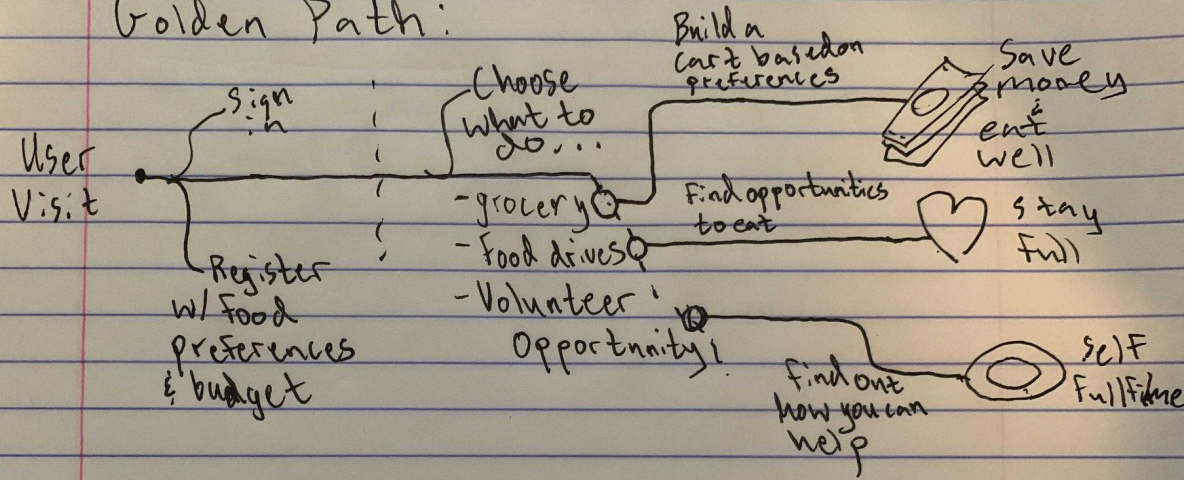 Golden Path:
User
Visit
Sign
in
Register
w/ Food
preferences
& budget
Choose
what to
do...
-grocery
-Food drives
-Volunteer
Opportunity
Build a
cart based on
preferences
Save
money
&
eat
well
Find opportunities
to eat
stay
full
find out
how you can
help
self